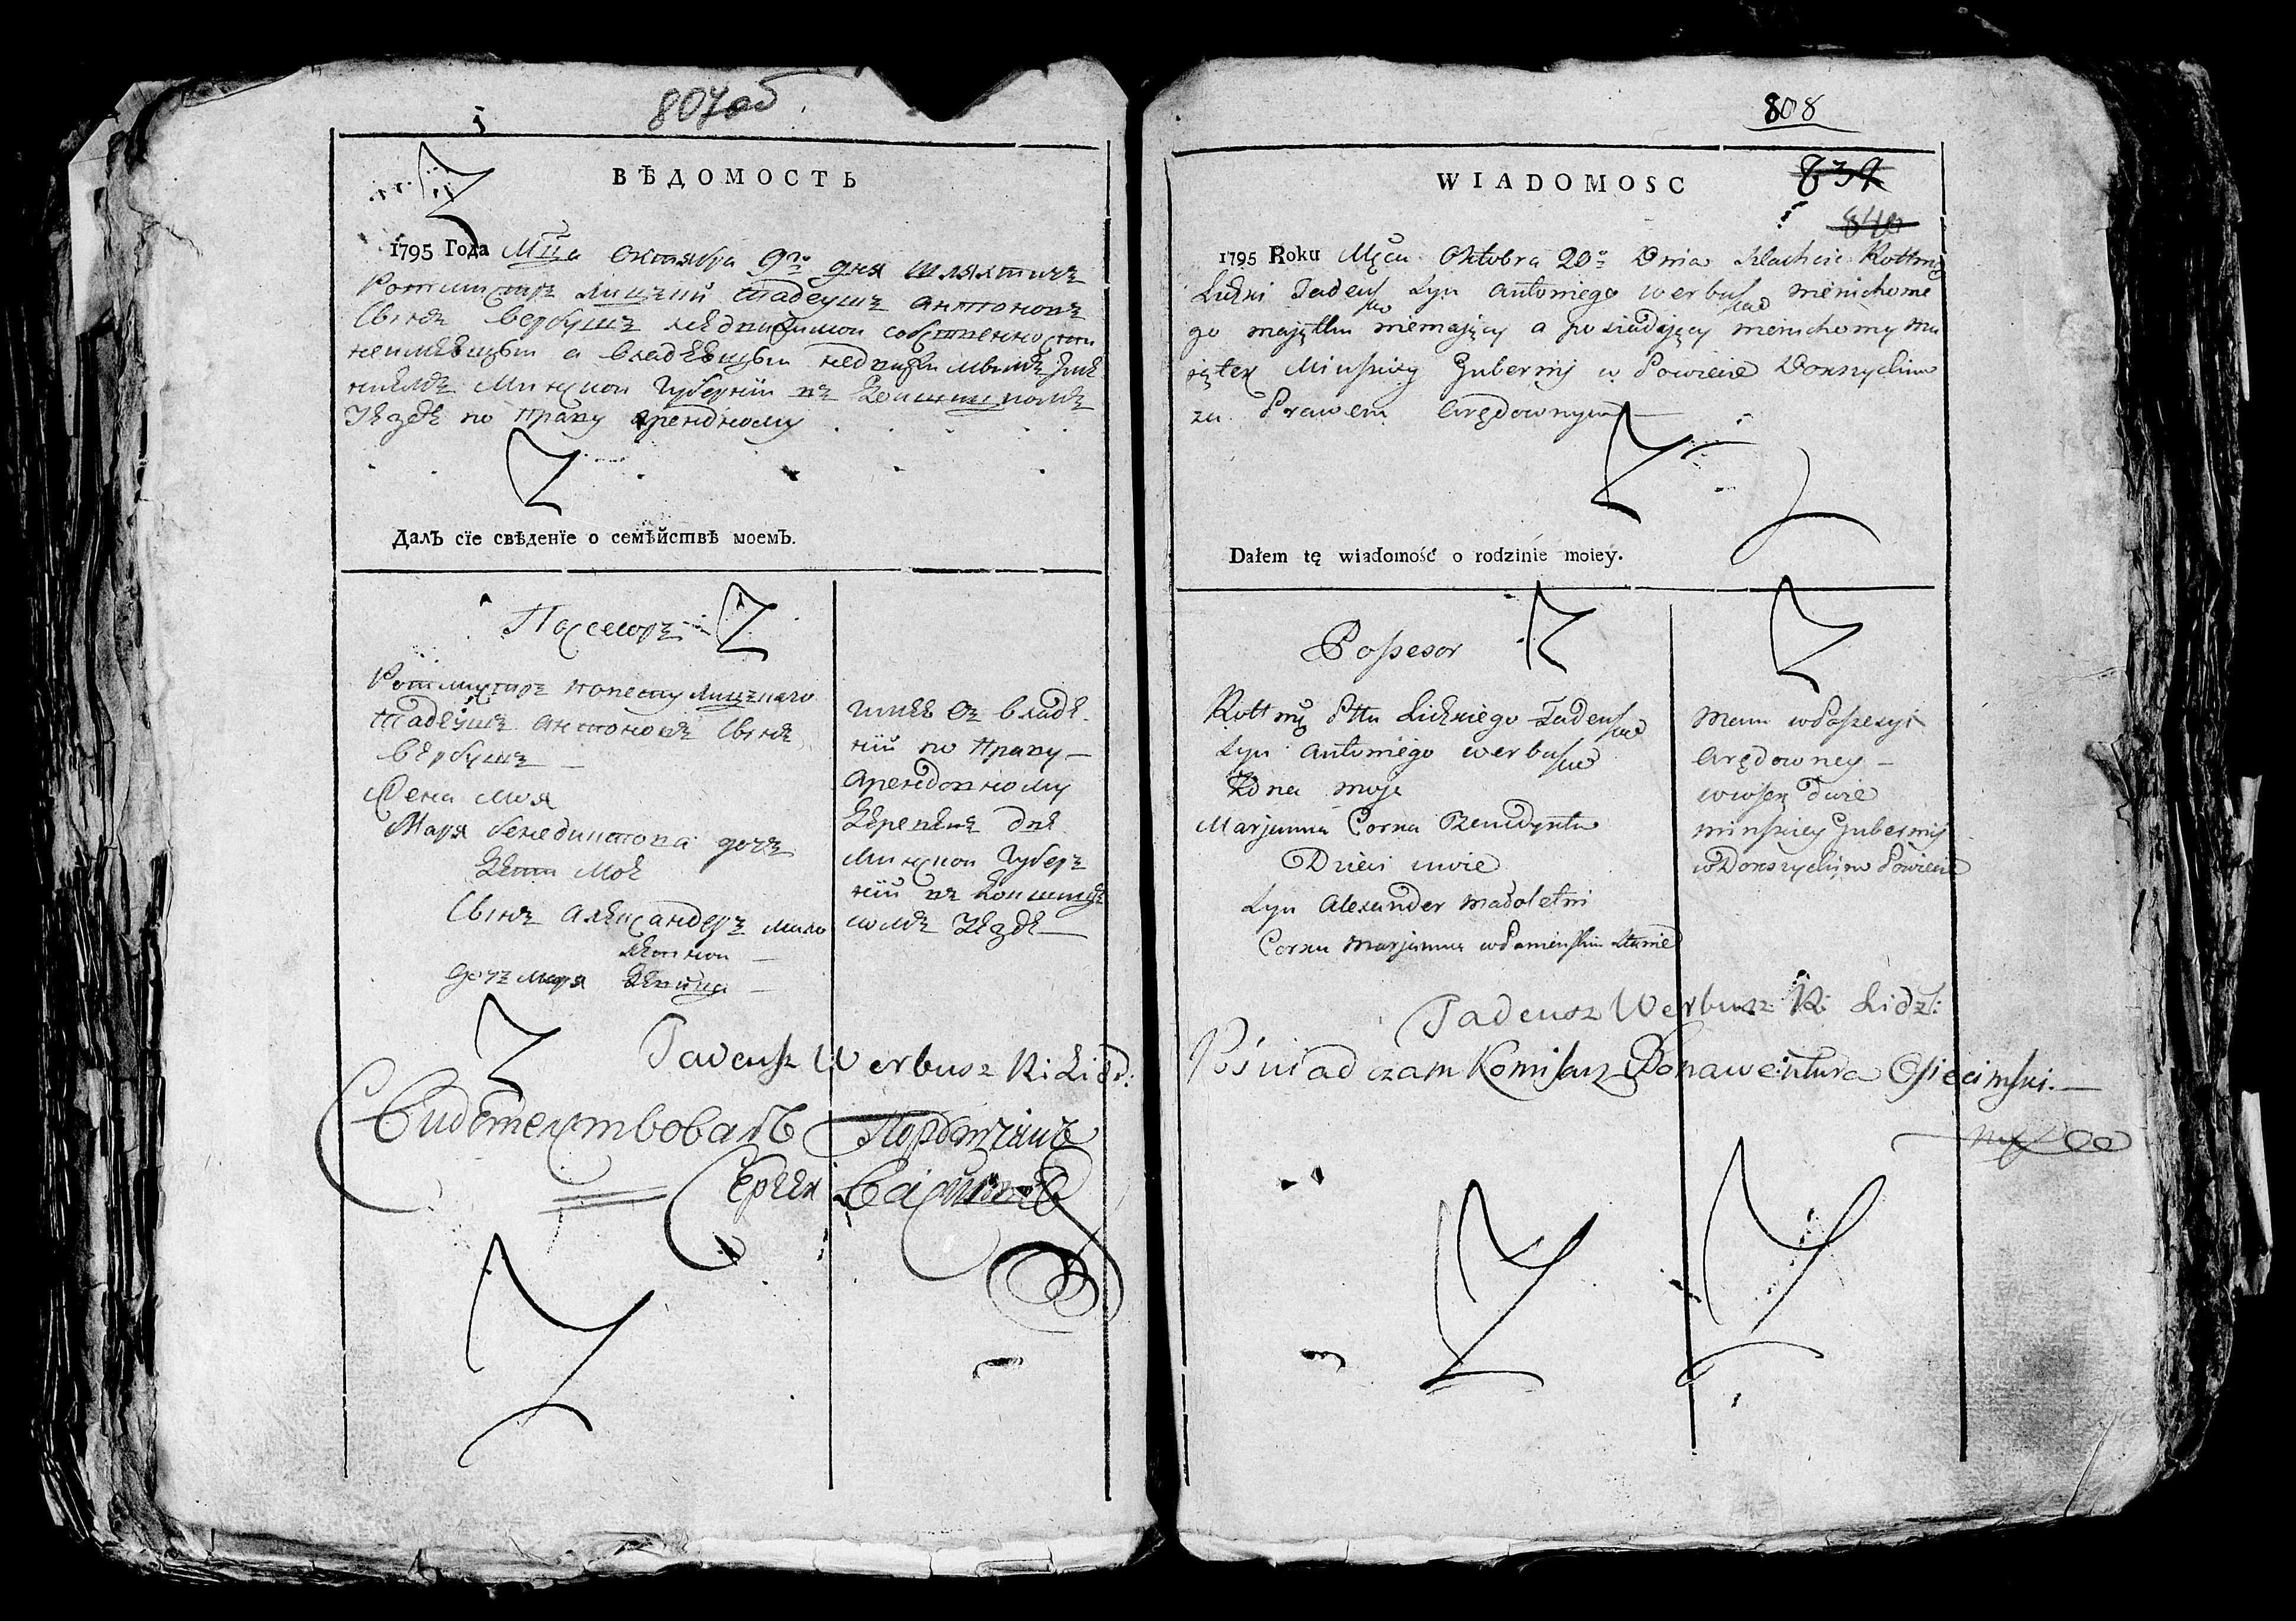 807 об
ВѢДОМОСТЬ
1795 Года Мца Октября 9го дня шляхтичъ
Ротмистръ Лидzкий Тадеушъ Антоновъ
Сынъ Вербушъ недвижимой собственности
неимѣющый а владѣющый недвижимымъ
Минской Губерніи въ
уѣздѣ по праву арендному
ДалЪ сїе свѣденїе о семѣйствѣ моемЪ.
Посесоръ
Ротмистръ повету Лидzкаго
Тадеушъ Антоновъ Сынъ
Вербушъ
Жена моя
Маря Бенедиктова дочъ
Дѣти мое
Сынъ Александеръ мало
лѣтной
дочъ Маря дѣвица
имѣю въ владѣ
нїи по праву
арендовному
деревень двѣ
Минской Губеръ
нїи въ
скомъ уѣздѣ
Tadeusz Werbusz R: Lidz:
Свидѣтельствовалъ Порутчикъ
Сергей
808
WIADOMOSC
839
840
1795 Roku Męca Oktobra 20o Dnia Szlachcic Rottm
Lidzki Tadeusz Syn Antoniego Werbusz nieruchome
go majątku niemający a posiadający nieruchomy ma
jątek Minskiey Gubernij w Powiecie Dokszyckim
za Prawem Arędownym
Dałem tę wiadomość o rodzinie moiey.
Possesor
Rottm Pttu Lidzkiego Tadeusz
Syn Antoniego Werbusz
Żona moja
Marjanna Corka Benedykta
Dzieci moie
Syn Alexander małoletni
Corka Marjanna w Panieńskim stanie
Mam w Possesyi
Arędowney
wiosek dwie
Minskiey Gubernij
w Dokszyckim Powiecie
Tadeusz Werbusz R: Lidz:
Poświadczam Komisarz Bonawentura Osiecimski.